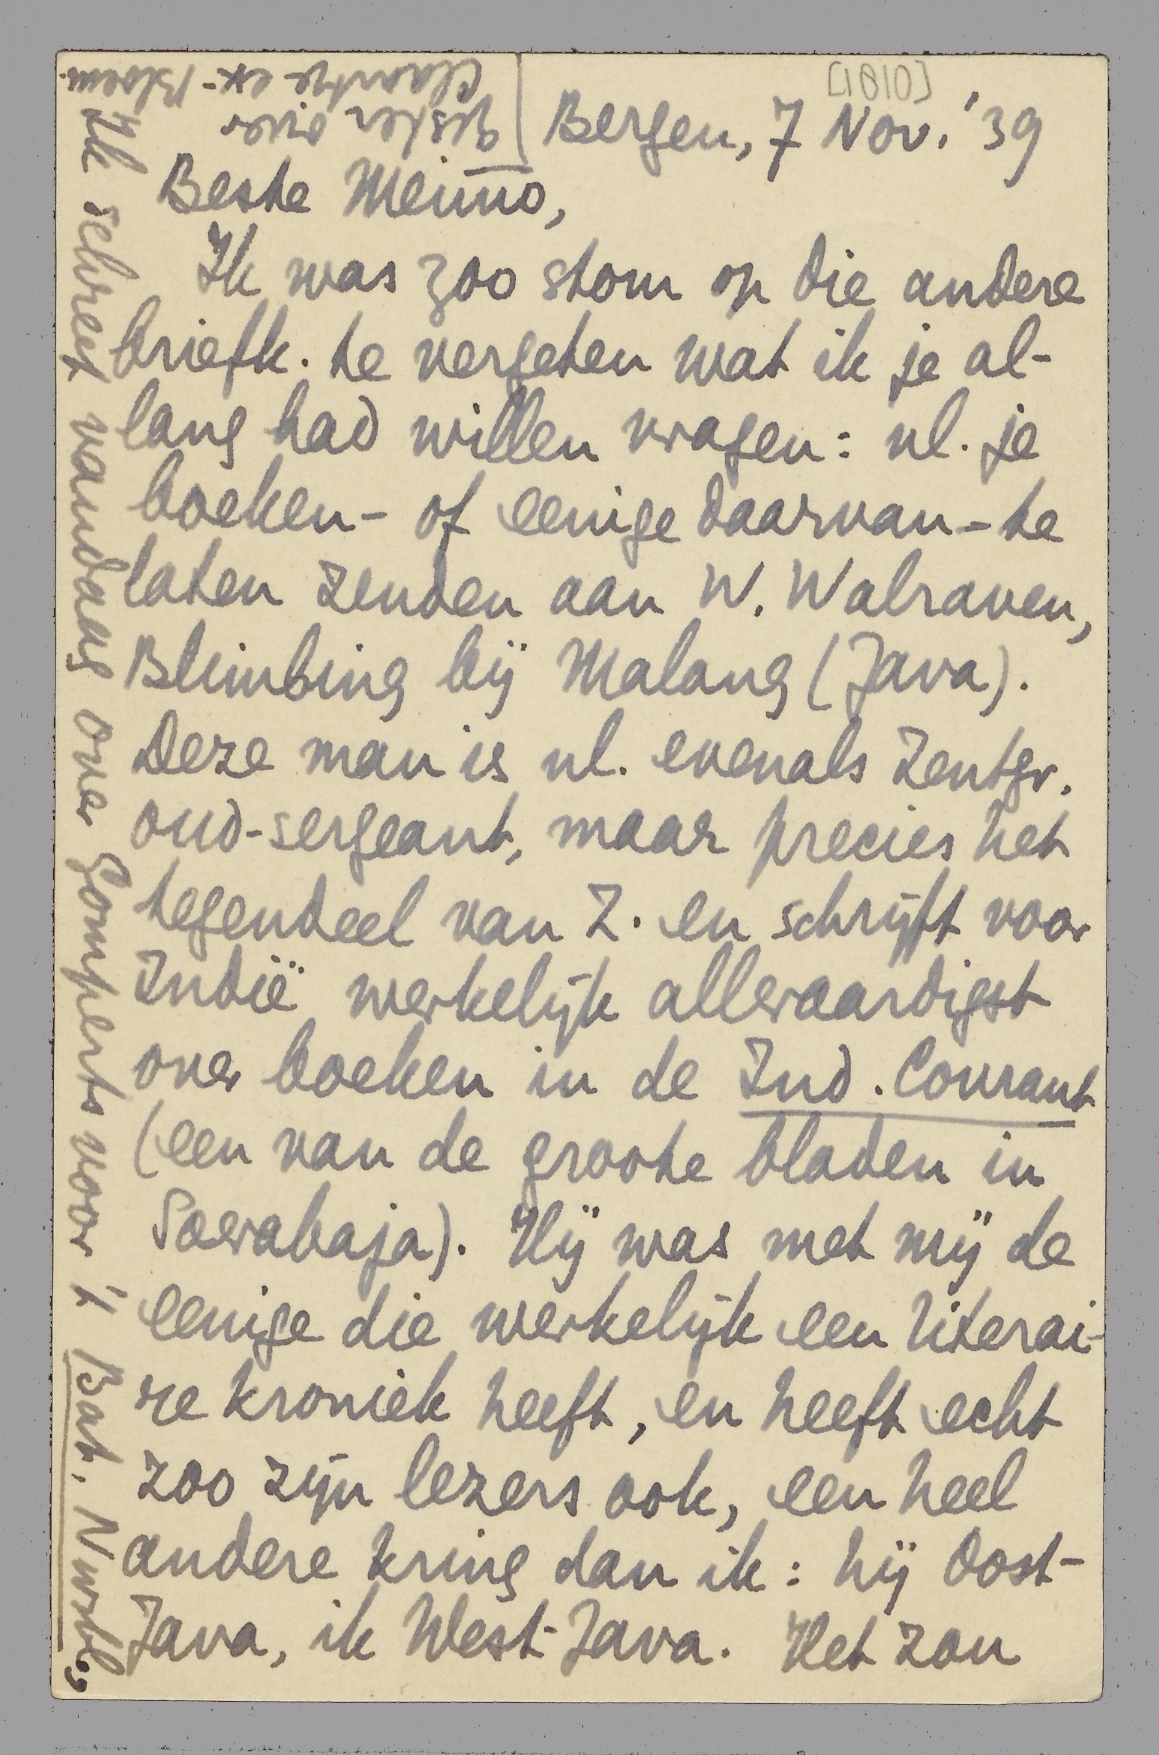 [1810]
Bergen, 7 Nov. '39
Beste Menno,
Ik was zoo stom op die andere
briefk. te vergeten wat ik je al-
lang had willen vragen: nl. je
boeken - of eenige daarvan - te
laten zenden aan W. Walraven,
Blimbing bij Malang (Java).
Deze man is nl. evenals Zentgr.
oud-sergeant, maar precies het
tegendeel van Z. en schrijft voor
Indië werkelijk alleraardigst
over boeken in de Ind. Courant
(een van de groote bladen in
Soerabaja). Hij was met mij de
eenige die werkelijk een literai-
re kroniek heeft, en heeft echt
zoo zijn lezers ook, een heel
andere kring dan ik: hij Oost-
Java, ik West-Java. Het zou
Ik schreef vandaag over Gomperts voor 't Bat. Nwsbl.,
gister over
Claartje ex-Bloem.